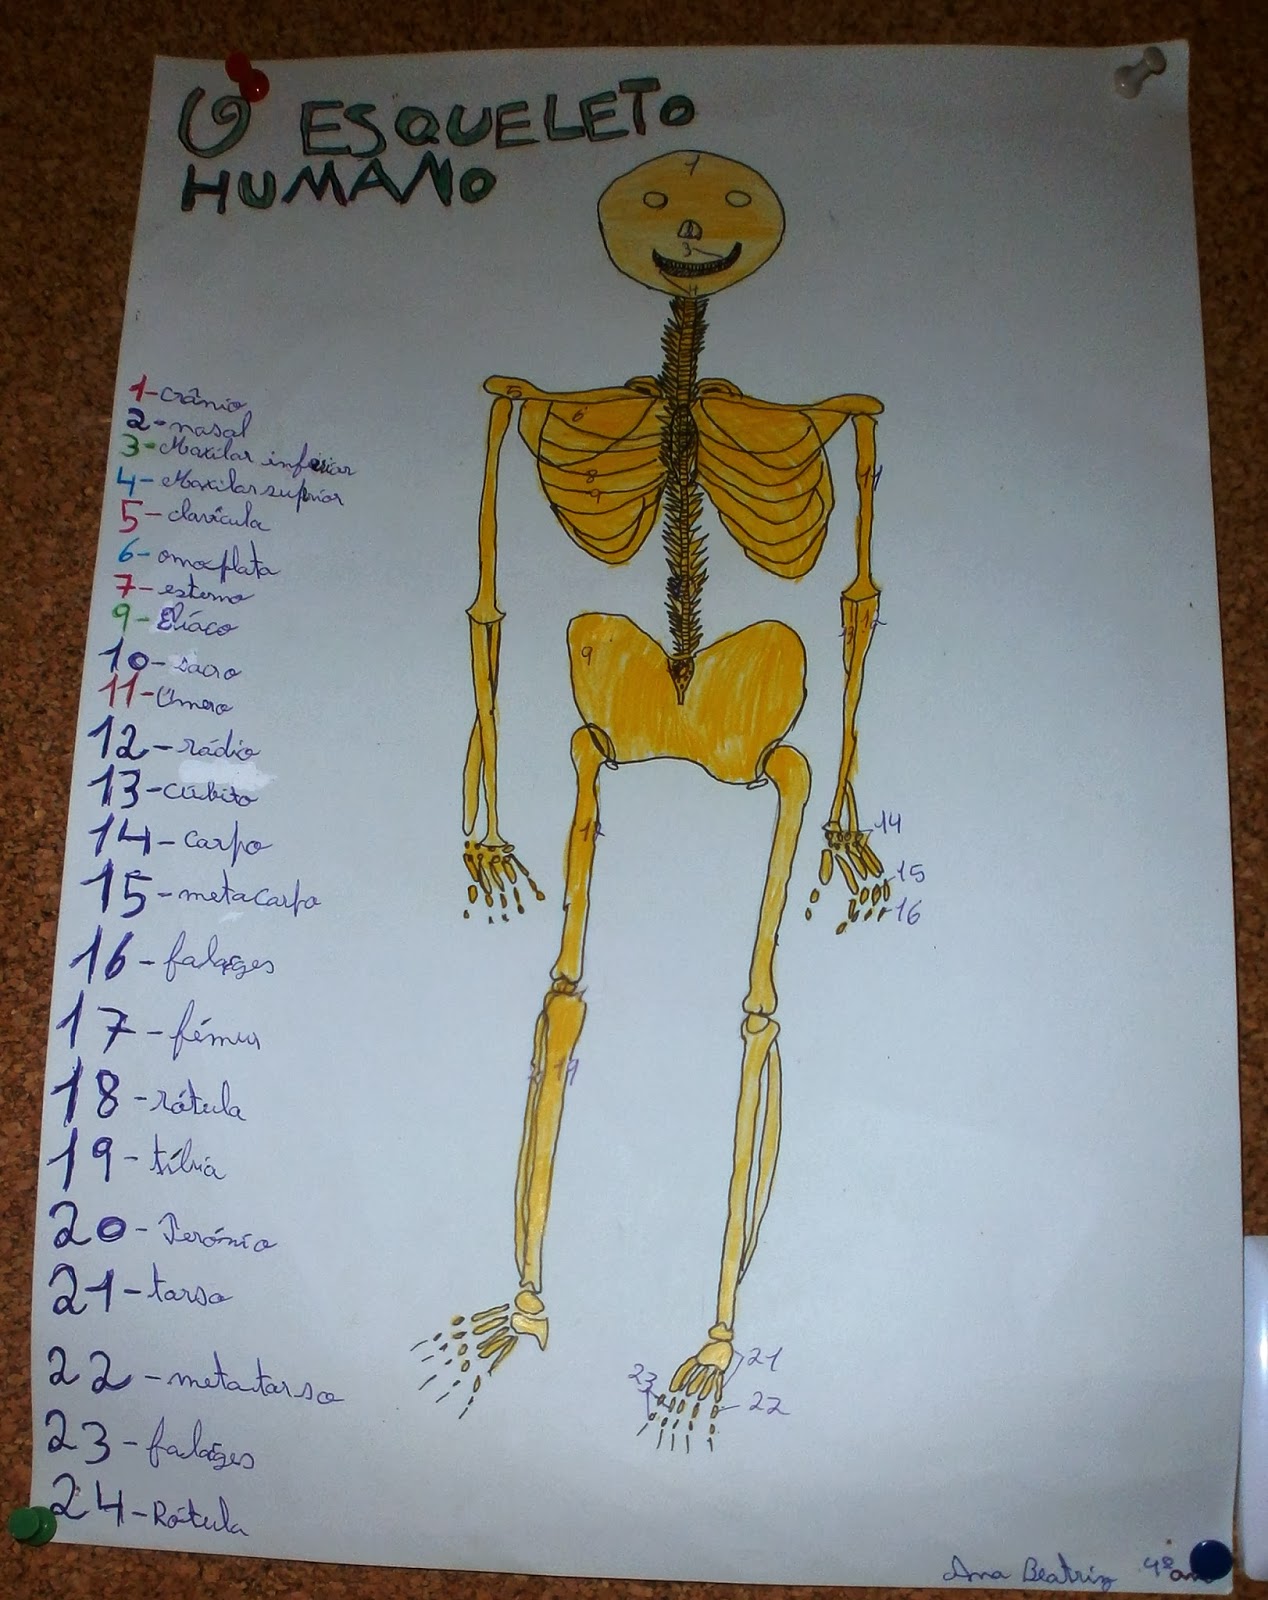 O ESQUELETO
HUMANO
1-crânio
2-nasal
3-Maxilar inferior
4-Maxilar suprior
5-clavícula
6-omoplata
7-esterno
9-Ilíaco
10-sacro
11-Úmero
12-rádio
13-cúbito
14-carpo
15-metacarpo
16-falages
17-fémur
18-rótula
19-tíbia
20-Perónio
21-tarso
22-metatarso
23-falages
24-Rótula
1
3
4
5
6
8
9
11
13 12
9
14
15
16
17
19
21
23
22
Ana Beatriz 4º ano